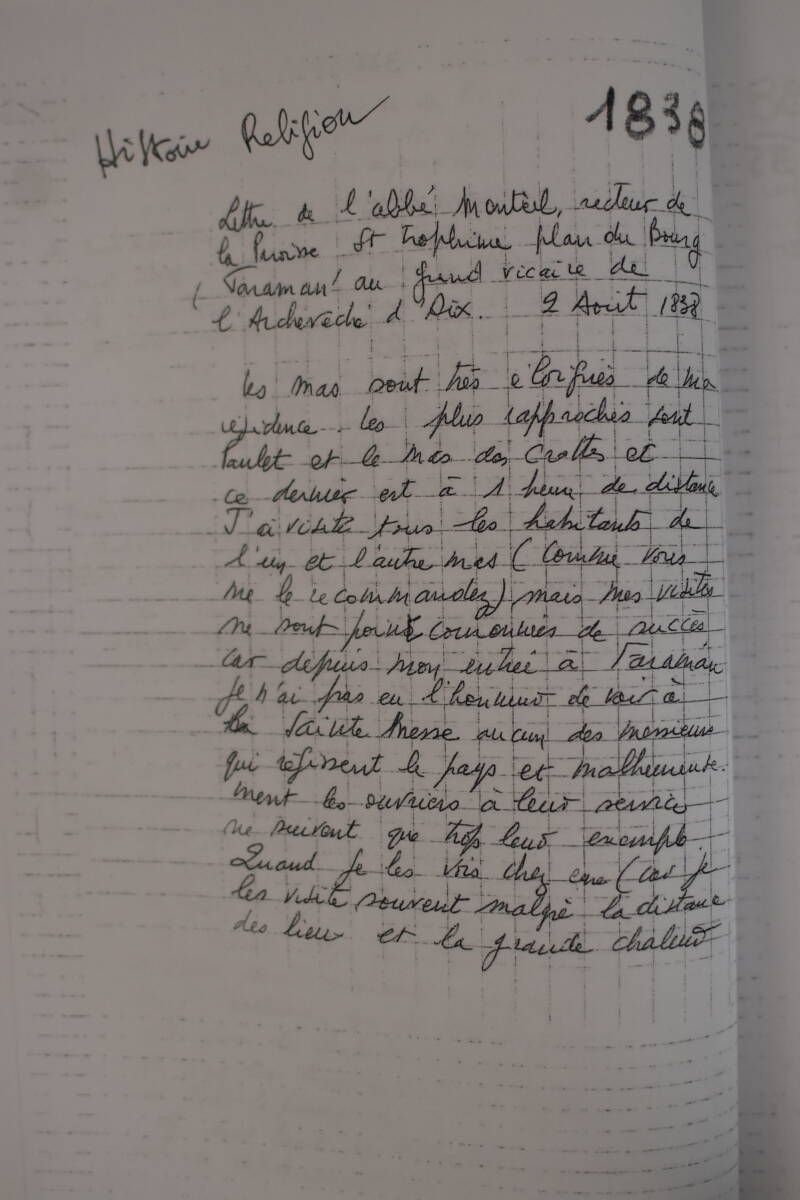 Histoire Religion
1838
Lettre de l'abbé Monteil, recteur de
la Paroisse St Trophime plan du Bourg
(Faraman) au grand vicaire de
l'Archevêché d'Aix. 2 Août 1838
Les mas sont très éloignés de ma
résidence. Les plus rapprochés sont
Paulet et le Mas des Crottes et
ce dernier est à 1 heure de distance
J'ai visité tous les habitants de
l'un et l'autre mas (comme vous
me le recommandez) mais mes visites
ne sont point couronnées de succès
car depuis mon entrée à Faraman
je n'ai pas eu l'honneur de voir à
la Sainte Messe aucun des messieurs
qui régissent le pays et malheureuse-
ment les ouvriers à leur service
ne suivent que trop leur exemple.
Quand je les vois chez eux (car je
les visite souvent malgré la distance
des lieux et la grande chaleur